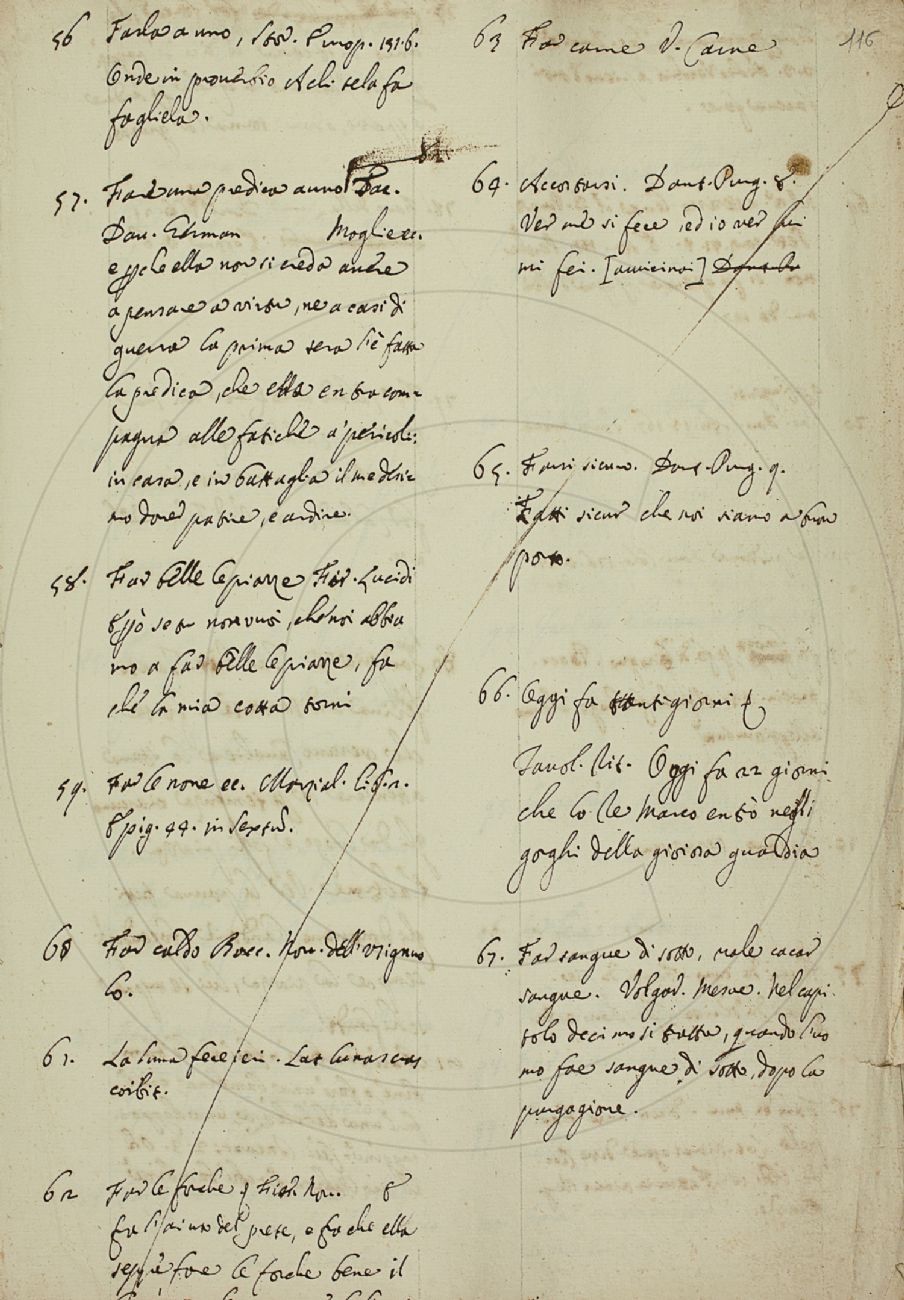 56 Farla a uno, Stor. Pinop. 131.6.
Onde in proverbio Achi te la fa
fagliela.
57. Fare una predica a uno Tac.
Dav. German Moglie ec.
e pche ella non si creda avere
a pensare a virtù, ne a casi di
guerra la prima sera l'è fatta
la predica, che ella entra com=
pagna alle fatiche a' pericoli:
in casa, e in battaglia il medesi=
mo dover patire, e ardire.
58. Far belle le piazze Fir. Lucidi
se tu non vuoi, che noi abbia
mo a far belle le piazze, fa
che la mia cotta torni
59. Far le none ec. Marzial. lib. 1.
Epig. 44. in Sextum.
60 Far caldo Bocc. Nov. dell'usignuo
lo.
61. La luna fece ieri. Lat luna
coibit.
62 Far le forche Fior. Nov.
del prete, e fa che ella
seppe fare le forche bene il
63 Far carne V. Carne
116
64. Accostarsi. Dant. Purg. 8.
Ver me si fece, ed io ver lui
mi fei. [avvicinai] Dant.
65. Farsi sicuro. Dant. Purg. 9.
Fatti sicur che noi siamo a buon
porto.
66. Oggi fa tanti giorni
Tavol. Rit. Oggi fa 22 giorni
che lo Re Marco entrò negli
gorghi della gioiosa guardia
67. Far sangue di sotto, vale cacar
sangue. Volgar. Mesue. Nel capi
tolo decimo si tratta, quando l'uo
mo fae sangue di sotto, dopo la
purgagione.